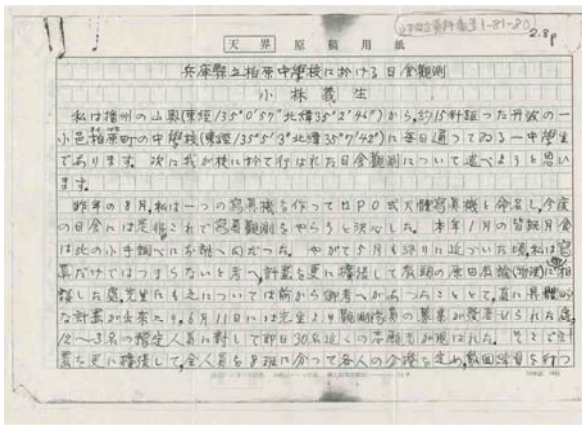 山本進資料番号1-81-80
2.8P
天界原稿用紙
兵庫縣立柏原中學校に於ける日食観測
小林義生
私は播州の山奥(東経135°0′57″北緯35°2′46″)から,約15粁距った丹波の一
小邑柏原町の中學校(東経135°5′3″北緯35°7′42″)に毎日通ってゐる一中學生
であります. 次に我が校に於て行はれた日食観測について述べようと思い
ます.
昨年の8月,私は一つの寫眞機を作ってロPO式天体寫眞機と命名し,今度
の日食には是非これで寫眞観測をやらうと決心した. 本年1月の皆既月食
は此の小手調べにお誂へ向だった. やがて5月も終りに近づいた頃,私は寫
眞だけではつまらないと考へ,計畫を更に擴張して 原田教諭(物理)に相
談した處,先生にも之については前から御考へがあつたこととて,直に具體的
な計畫が出来たり,6月11日には先生より観測隊員の募集が発せられた處,
12~3名の豫定人員に對して即日30名近くの志願者が現はれた. そこで計
畫を更に擴張して,全人員を8班に分って各人の分擔を定め,数回演習を行つ